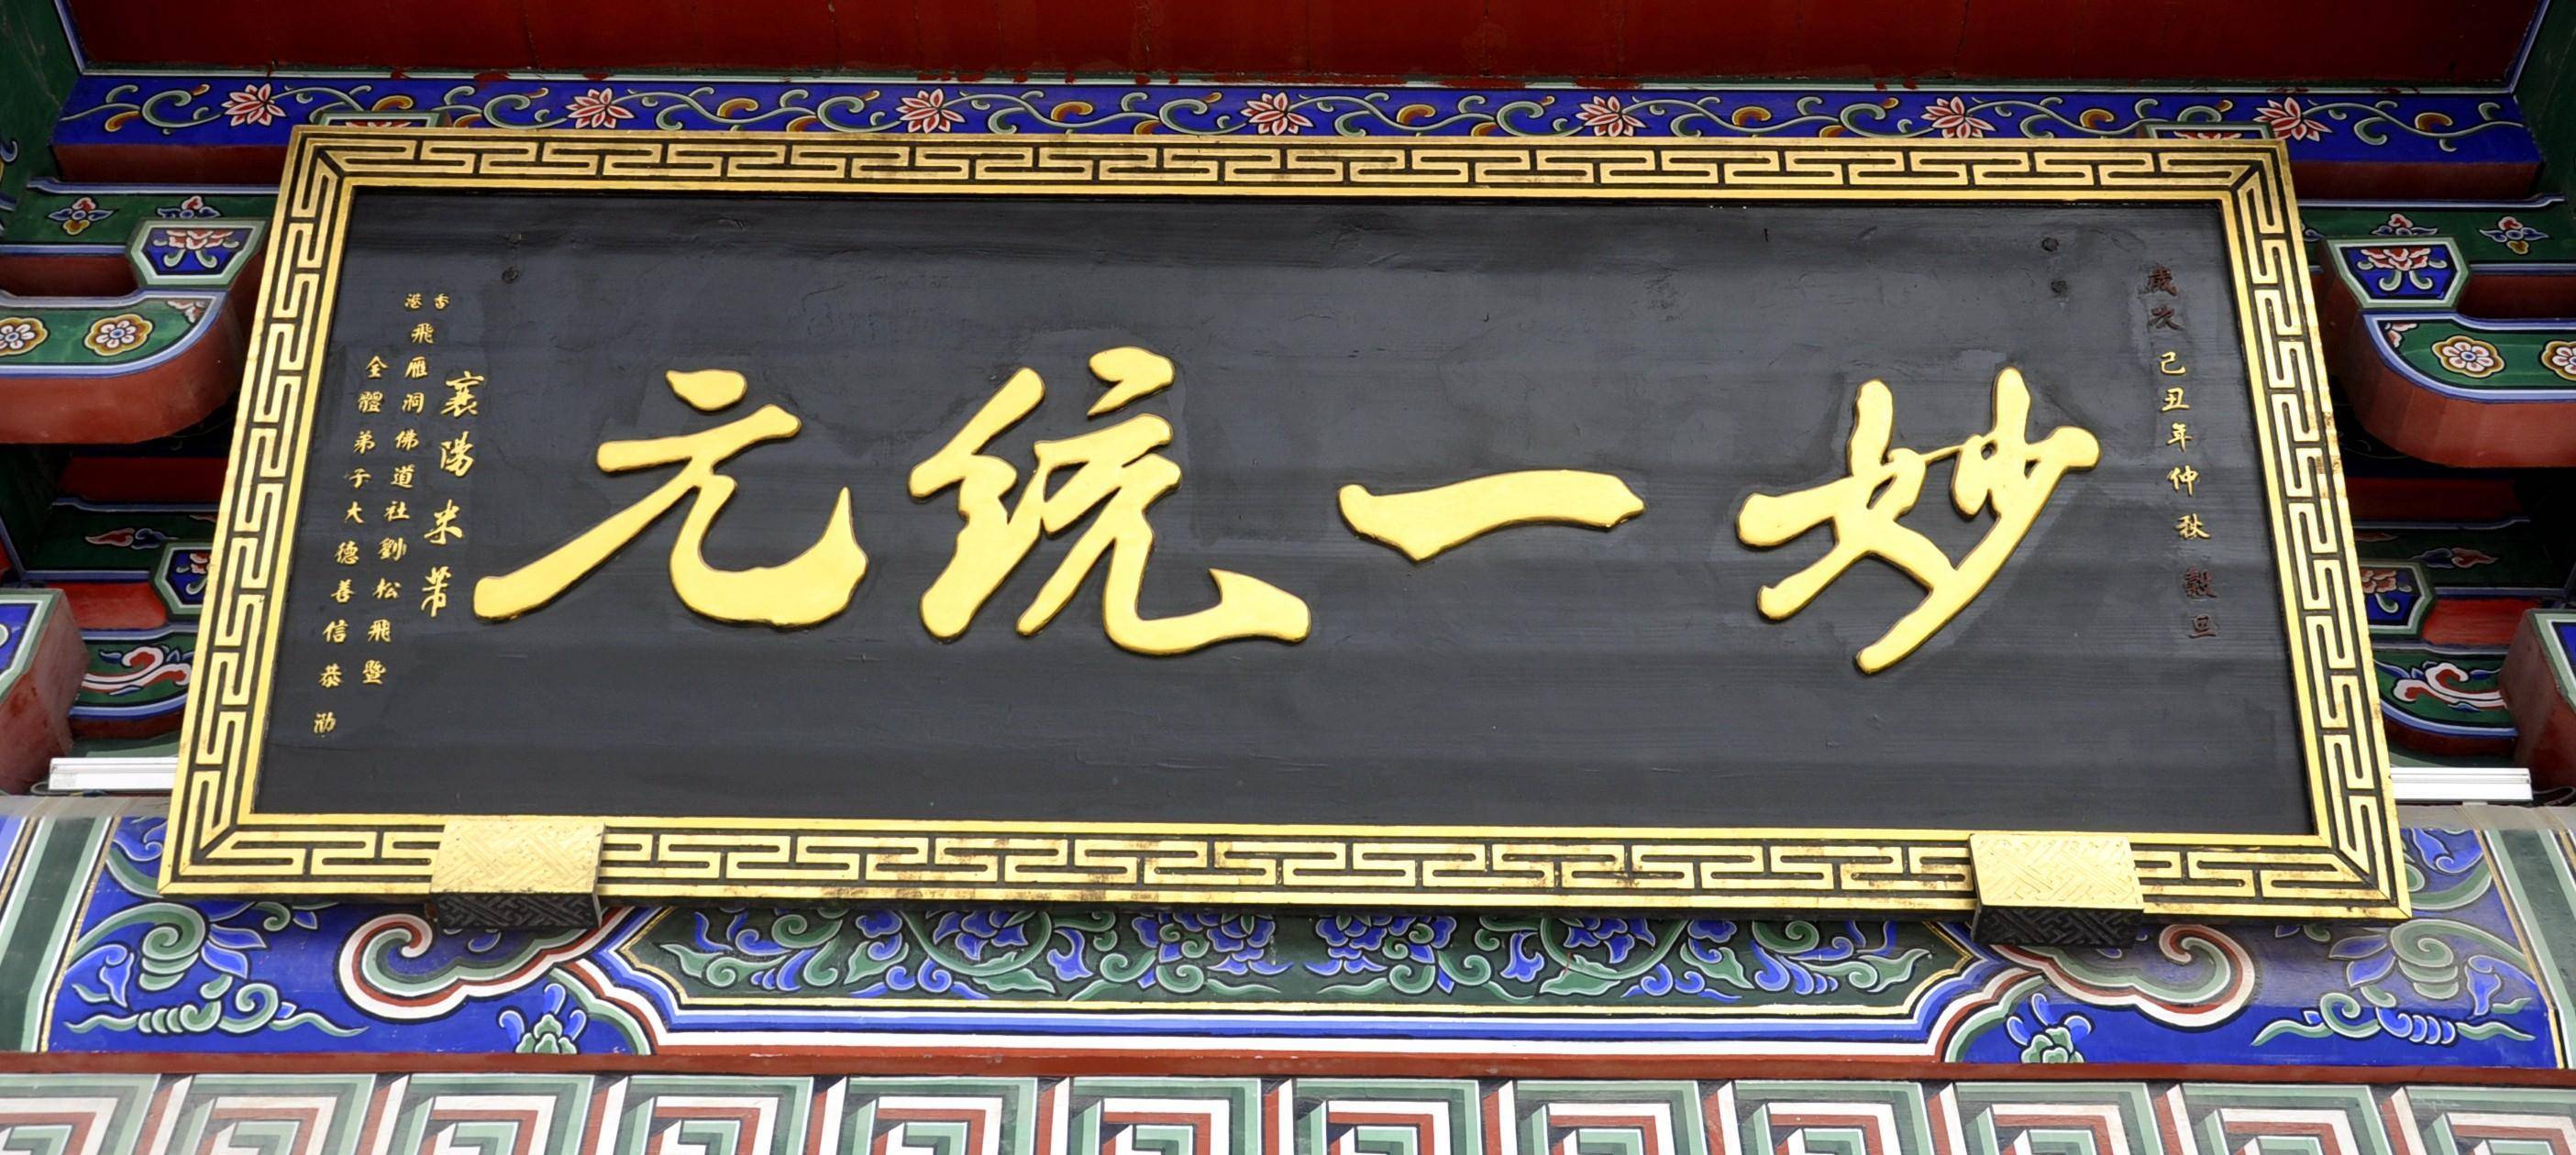 歲次己丑年仲秋穀旦
妙一统元
襄陽米芾
香港飛雁洞佛道社劉松飛暨
全體弟子大德善信恭泐